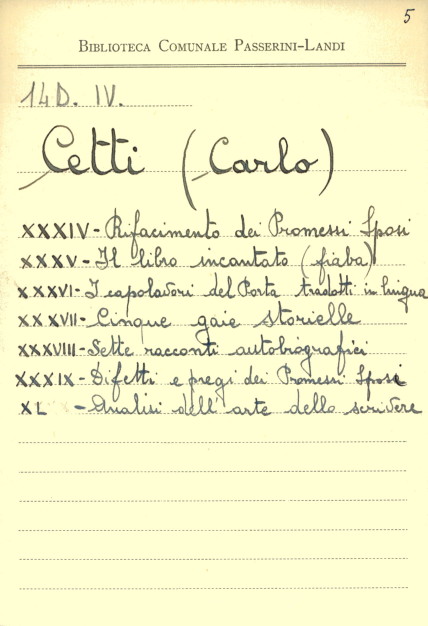 5
BIBLIOTECA COMUNALE PASSERINI-LANDI
14D. IV.
Cetti (Carlo)
XXXIV - Rifacimento dei Promessi Sposi
XXXV - Il libro incantato (fiaba)
XXXVI - I capolavori del Porta tradotti in lingua
XXXVII - Cinque gaie storielle
XXXVIII - Sette racconti autobiografici
XXXIX - Difetti e pregi dei Promessi Sposi
XL - Analisi dell'arte dello scrivere